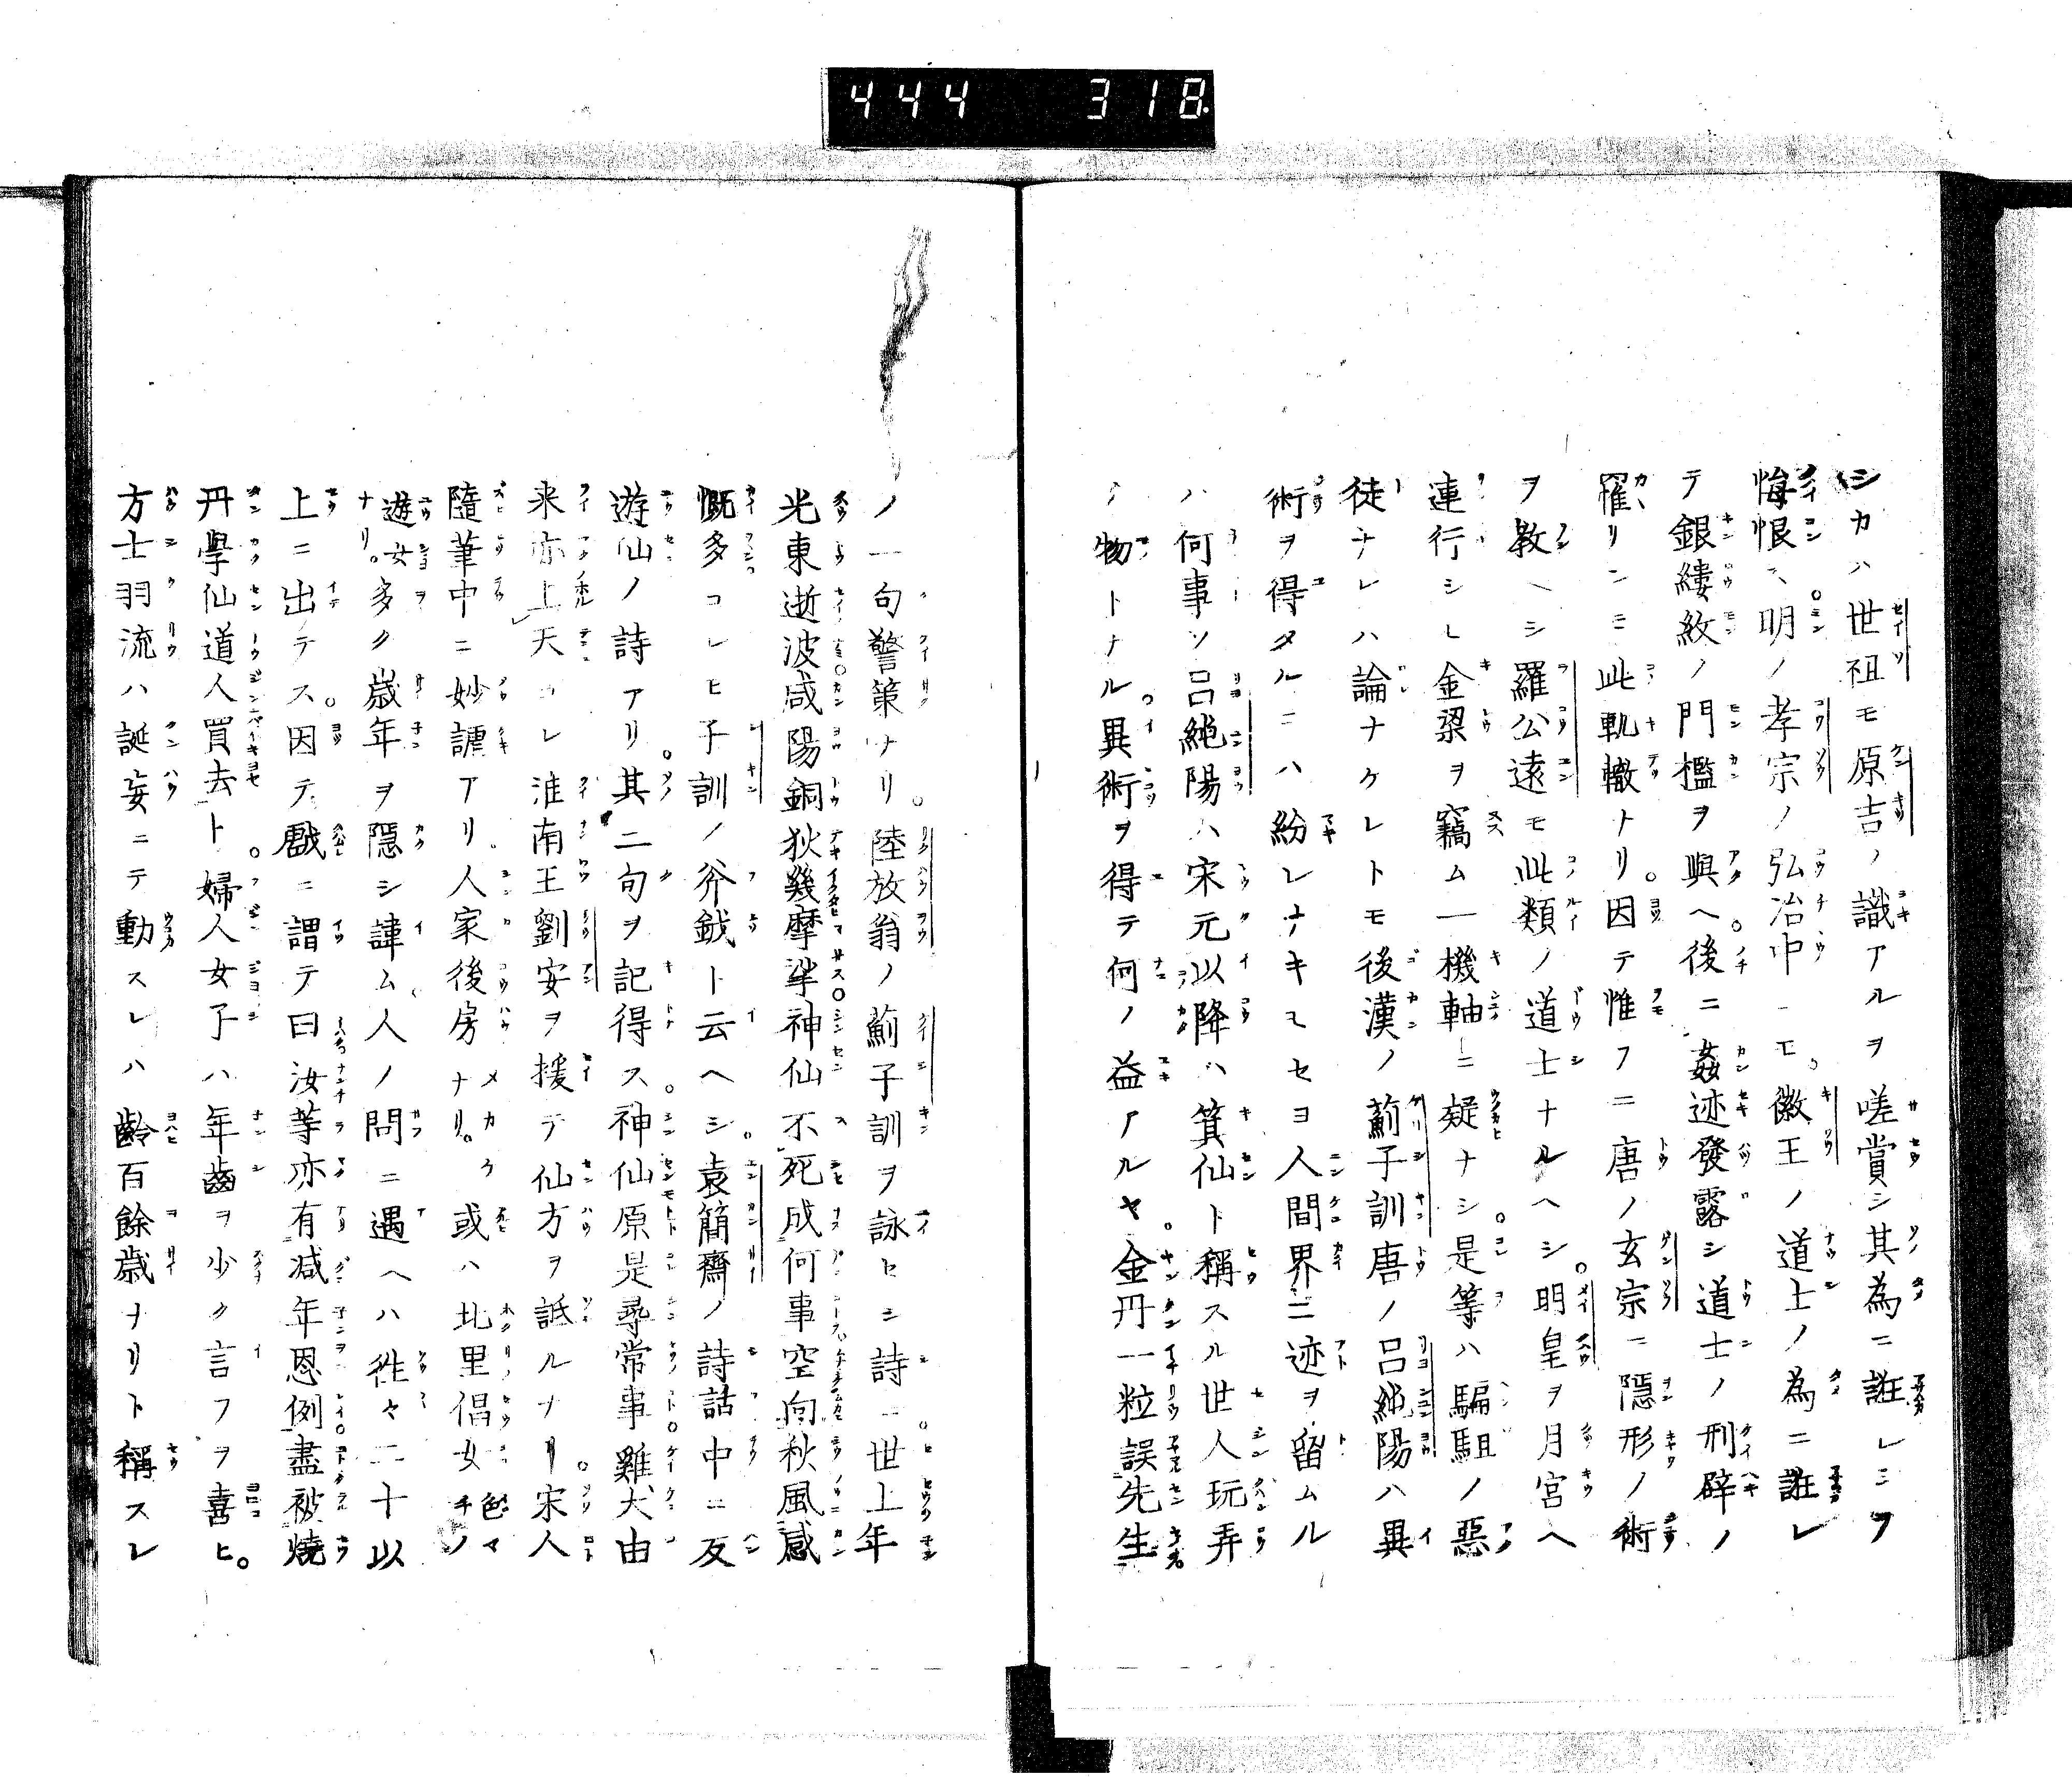 444 318
シカハ世祖モ原吉ノ識アルヲ嗟賞シ其為ニ誑レシヲ
悔恨ス明ノ孝宗ノ弘治中ニモ徽王ノ道士ノ為ニ誑レ
テ銀縷紋ノ門檻ヲ與ヘ後ニ姦迹發露シ道士ノ刑辟ノ
罹リシモ此軌轍トリ因テ惟フニ唐ノ玄宗ニ隠形ノ術
ヲ教ヘシ羅公遠モ此類ノ道士ナルヘシ明皇ヲ月宮ヘ
連行シし金梁ヲ竊ム一機軸ニ疑ナシ是等ハ騙駔ノ惡
徒ナレハ論ナケレトモ後漢ノ薊子訓唐ノ呂純陽ハ異
術ヲ得タルニハ紛レナキモセヨ人間界ニ迹ヲ留ムル
ハ何事ソ呂純陽ハ宋元以降ハ箕仙ト稱スル世人玩弄
ノ物トナル異術ヲ得テ何ノ益アルヤ金丹一粒誤先生
ノ一句警策ナリ陸放翁ノ薊子訓ヲ詠セシ詩ニ世上年
光東逝波咸陽銅狄幾摩挲神仙不死成何事空向秋風感
慨多コレヒ子訓ノ斧鉞ト云ヘシ袁簡齋ノ詩話中ニ反
遊仙ノ詩アリ其二句ヲ記得ス神仙原是尋常事雞犬由
来亦上天コレ淮南王劉安ヲ援テ仙方ヲ詆ルナリ宋人
隨筆中ニ妙謔アリ人家後房ナリメカケ或ハ北里倡女色マチノ
遊女ナリ多ク歳年ヲ隱シ諱ム人ノ問ニ遇ヘハ徃々二十以
上ニ出テス因テ戲ニ謂テ曰汝等亦有减年恩例盡被燒
丹學仙道人買去ト婦人女子ハ年齒ヲ少ク言フヲ喜ヒ
方士羽流ハ誕妄ニテ動スレハ齢百餘歳ナリト稱スレ